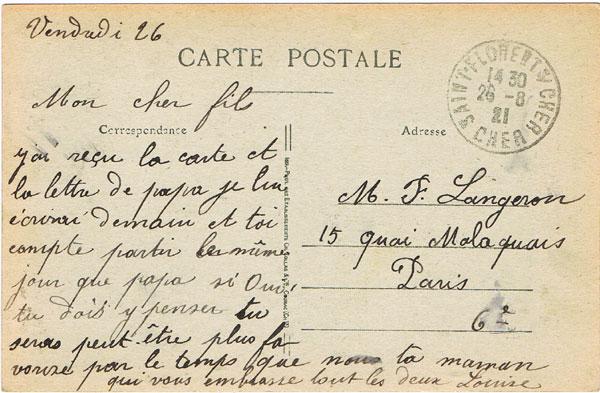 Vendredi 26
CARTE POSTALE
SAINT-FLORENT S/ CHER
14 30
26 -8
21
CHER
Mon cher fils
Correspondance
Adresse
j'ai reçu la carte et
la lettre de papa je lui
écrirai demain et toi
compte partir le même
jour que papa si Oui,
tu dois y penser tu
seras peut-être plus fa
vorisé par le temps que nous ta maman
qui vous embrasse tout les deux Louise
M. F. Langeron
15 quai Malaquais
Paris
6e